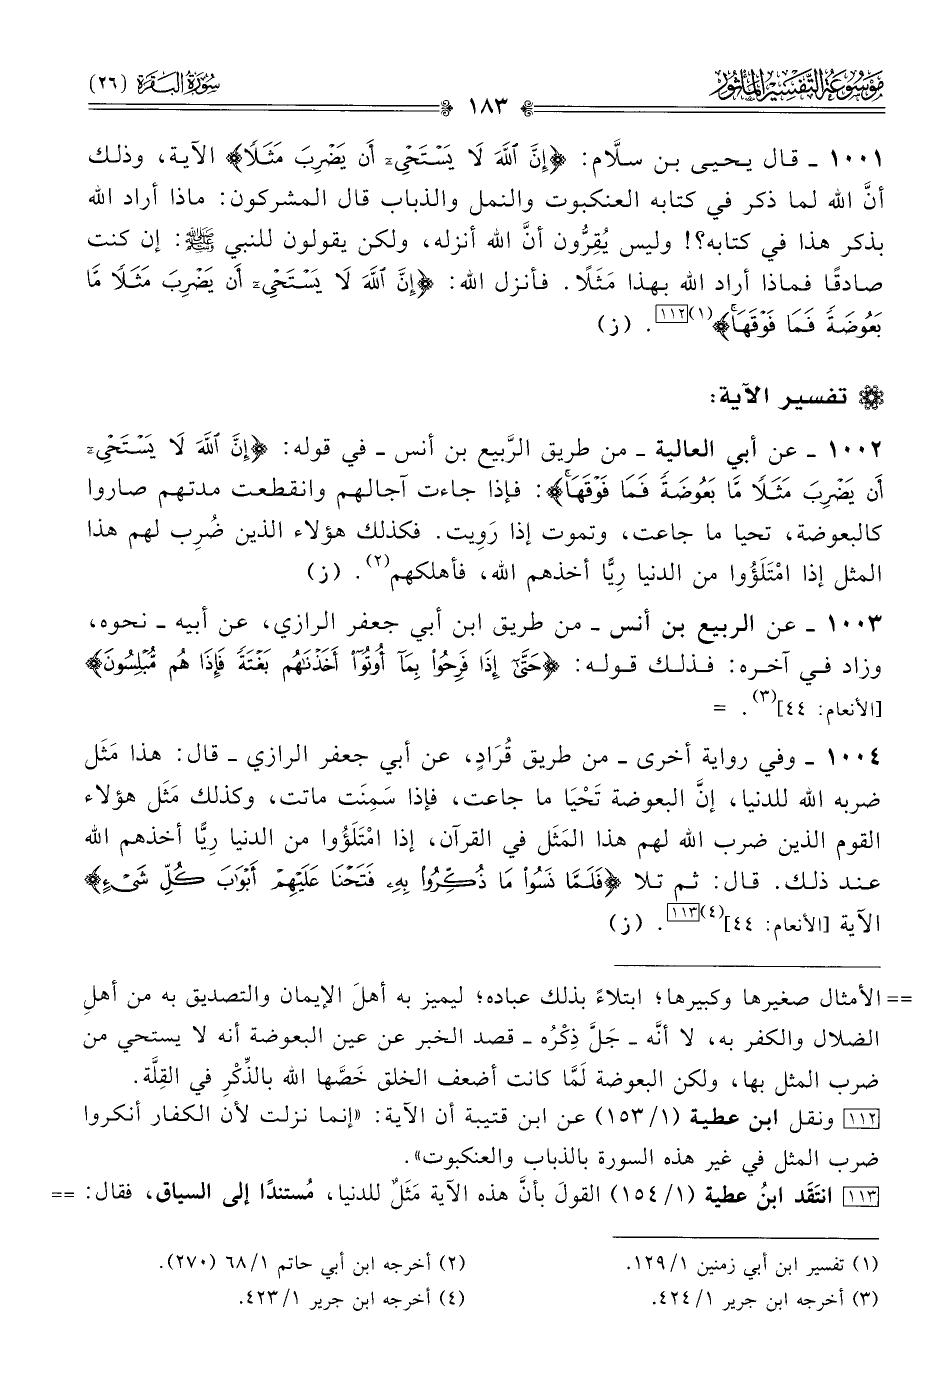 موسوعة التفسير المأثور
سورة البقرة (٢٦)
١٨٣
١٠٠١ ـ قال يحيى بن سلَّام: ﴿إِنَّ ٱللَّهَ لَا يَسۡتَحۡيِۦٓ أَن يَضۡرِبَ مَثَلًا﴾ الآية، وذلك
أنَّ الله لما ذكر في كتابه العنكبوت والنمل والذباب قال المشركون: ماذا أراد الله
بذكر هذا في كتابه؟! وليس يُقِرُّون أنَّ الله أنزله، ولكن يقولون للنبي ﷺ: إن كنت
صادقًا فماذا أراد الله بهذا مَثَلًا. فأنزل الله: ﴿إِنَّ ٱللَّهَ لَا يَسۡتَحۡيِۦٓ أَن يَضۡرِبَ مَثَلًا مَّا
بَعُوضَةً فَمَا فَوۡقَهَاۚ﴾(١)[١١٢]. (ز)
تفسير الآية:
١٠٠٢ ـ عن أبي العالية ـ من طريق الرَّبيع بن أنس ـ في قوله: ﴿إِنَّ ٱللَّهَ لَا يَسۡتَحۡيِۦٓ
أَن يَضۡرِبَ مَثَلًا مَّا بَعُوضَةً فَمَا فَوۡقَهَاۚ﴾: فإذا جاءت آجالهم وانقطعت مدتهم صاروا
كالبعوضة، تحيا ما جاعت، وتموت إذا رَوِيت. فكذلك هؤلاء الذين ضُرِب لهم هذا
المثل إذا امْتَلَؤُوا من الدنيا رِيًّا أخذهم الله، فأهلكهم(٢). (ز)
١٠٠٣ ـ عن الربيع بن أنس ـ من طريق ابن أبي جعفر الرازي، عن أبيه ـ نحوه،
وزاد في آخره: فذلك قوله: ﴿حَتَّىٰٓ إِذَا فَرِحُواْ بِمَآ أُوتُوٓاْ أَخَذۡنَٰهُم بَغۡتَةً فَإِذَا هُم مُّبۡلِسُونَ﴾
[الأنعام: ٤٤](٣). =
١٠٠٤ ـ وفي رواية أخرى ـ من طريق قُرَادٍ، عن أبي جعفر الرازي ـ قال: هذا مَثَل
ضربه الله للدنيا، إنَّ البعوضة تَحْيَا ما جاعت، فإذا سَمِنَت ماتت، وكذلك مَثَل هؤلاء
القوم الذين ضرب الله لهم هذا المَثَل في القرآن، إذا امْتَلَؤُوا من الدنيا رِيًّا أخذهم الله
عند ذلك. قال: ثم تلا ﴿فَلَمَّا نَسُواْ مَا ذُكِّرُواْ بِهِۦ فَتَحۡنَا عَلَيۡهِمۡ أَبۡوَٰبَ كُلِّ شَيۡءٍ﴾
الآية [الأنعام: ٤٤](٤)[١١٣]. (ز)
== الأمثال صغيرها وكبيرها؛ ابتلاءً بذلك عباده؛ ليميز به أهلَ الإيمان والتصديق به من أهلِ
الضلال والكفر به، لا أنَّه ـ جَلَّ ذِكْرُه ـ قصد الخبر عن عين البعوضة أنه لا يستحي من
ضرب المثل بها، ولكن البعوضة لَمَّا كانت أضعف الخلق خَصَّها الله بالذِّكْرِ في القِلَّة.
[١١٢] ونقل ابن عطية (١/ ١٥٣) عن ابن قتيبة أن الآية: «إنما نزلت لأن الكفار أنكروا
ضرب المثل في غير هذه السورة بالذباب والعنكبوت».
[١١٣] انتَقَد ابنُ عطية (١/ ١٥٤) القولَ بأنَّ هذه الآية مَثَلٌ للدنيا، مُستندًا إلى السياق، فقال: ==
(١) تفسير ابن أبي زمنين ١/ ١٢٩.
(٢) أخرجه ابن أبي حاتم ١/ ٦٨ (٢٧٠).
(٣) أخرجه ابن جرير ١/ ٤٢٤.
(٤) أخرجه ابن جرير ١/ ٤٢٣.